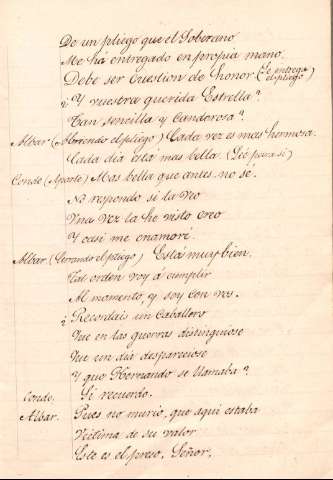 De un pliego que el Soberano
Me há entregado en propia mano.
Debe ser cuestion de honor (Le entrega el pliego)
¿Y vuestra querida Estrella?
Tan sencilla y candorosa?
Albar (Abriendo el pliego) Cada vez es mas hermosa.
Cada día está mas bella. (Leé para sí)
Conde (Aparte) Mas bella que antes no se.
No respondo si la veo
Una vez la he visto creo
Y casi me enamoré.
Albar (Cerrando el pliego) Está muy bien.
Tal orden voy á cumplir
Al momento, y soy con vos.
¿Recordais un caballero
Que en las guerras distinguiose
Que un día despareciose
Y que Hernando se llamaba?
Conde. Si recuerdo.
Albar. Pues no murió, que aqui estaba
Victima de su valor
Este es el preso, Señor.